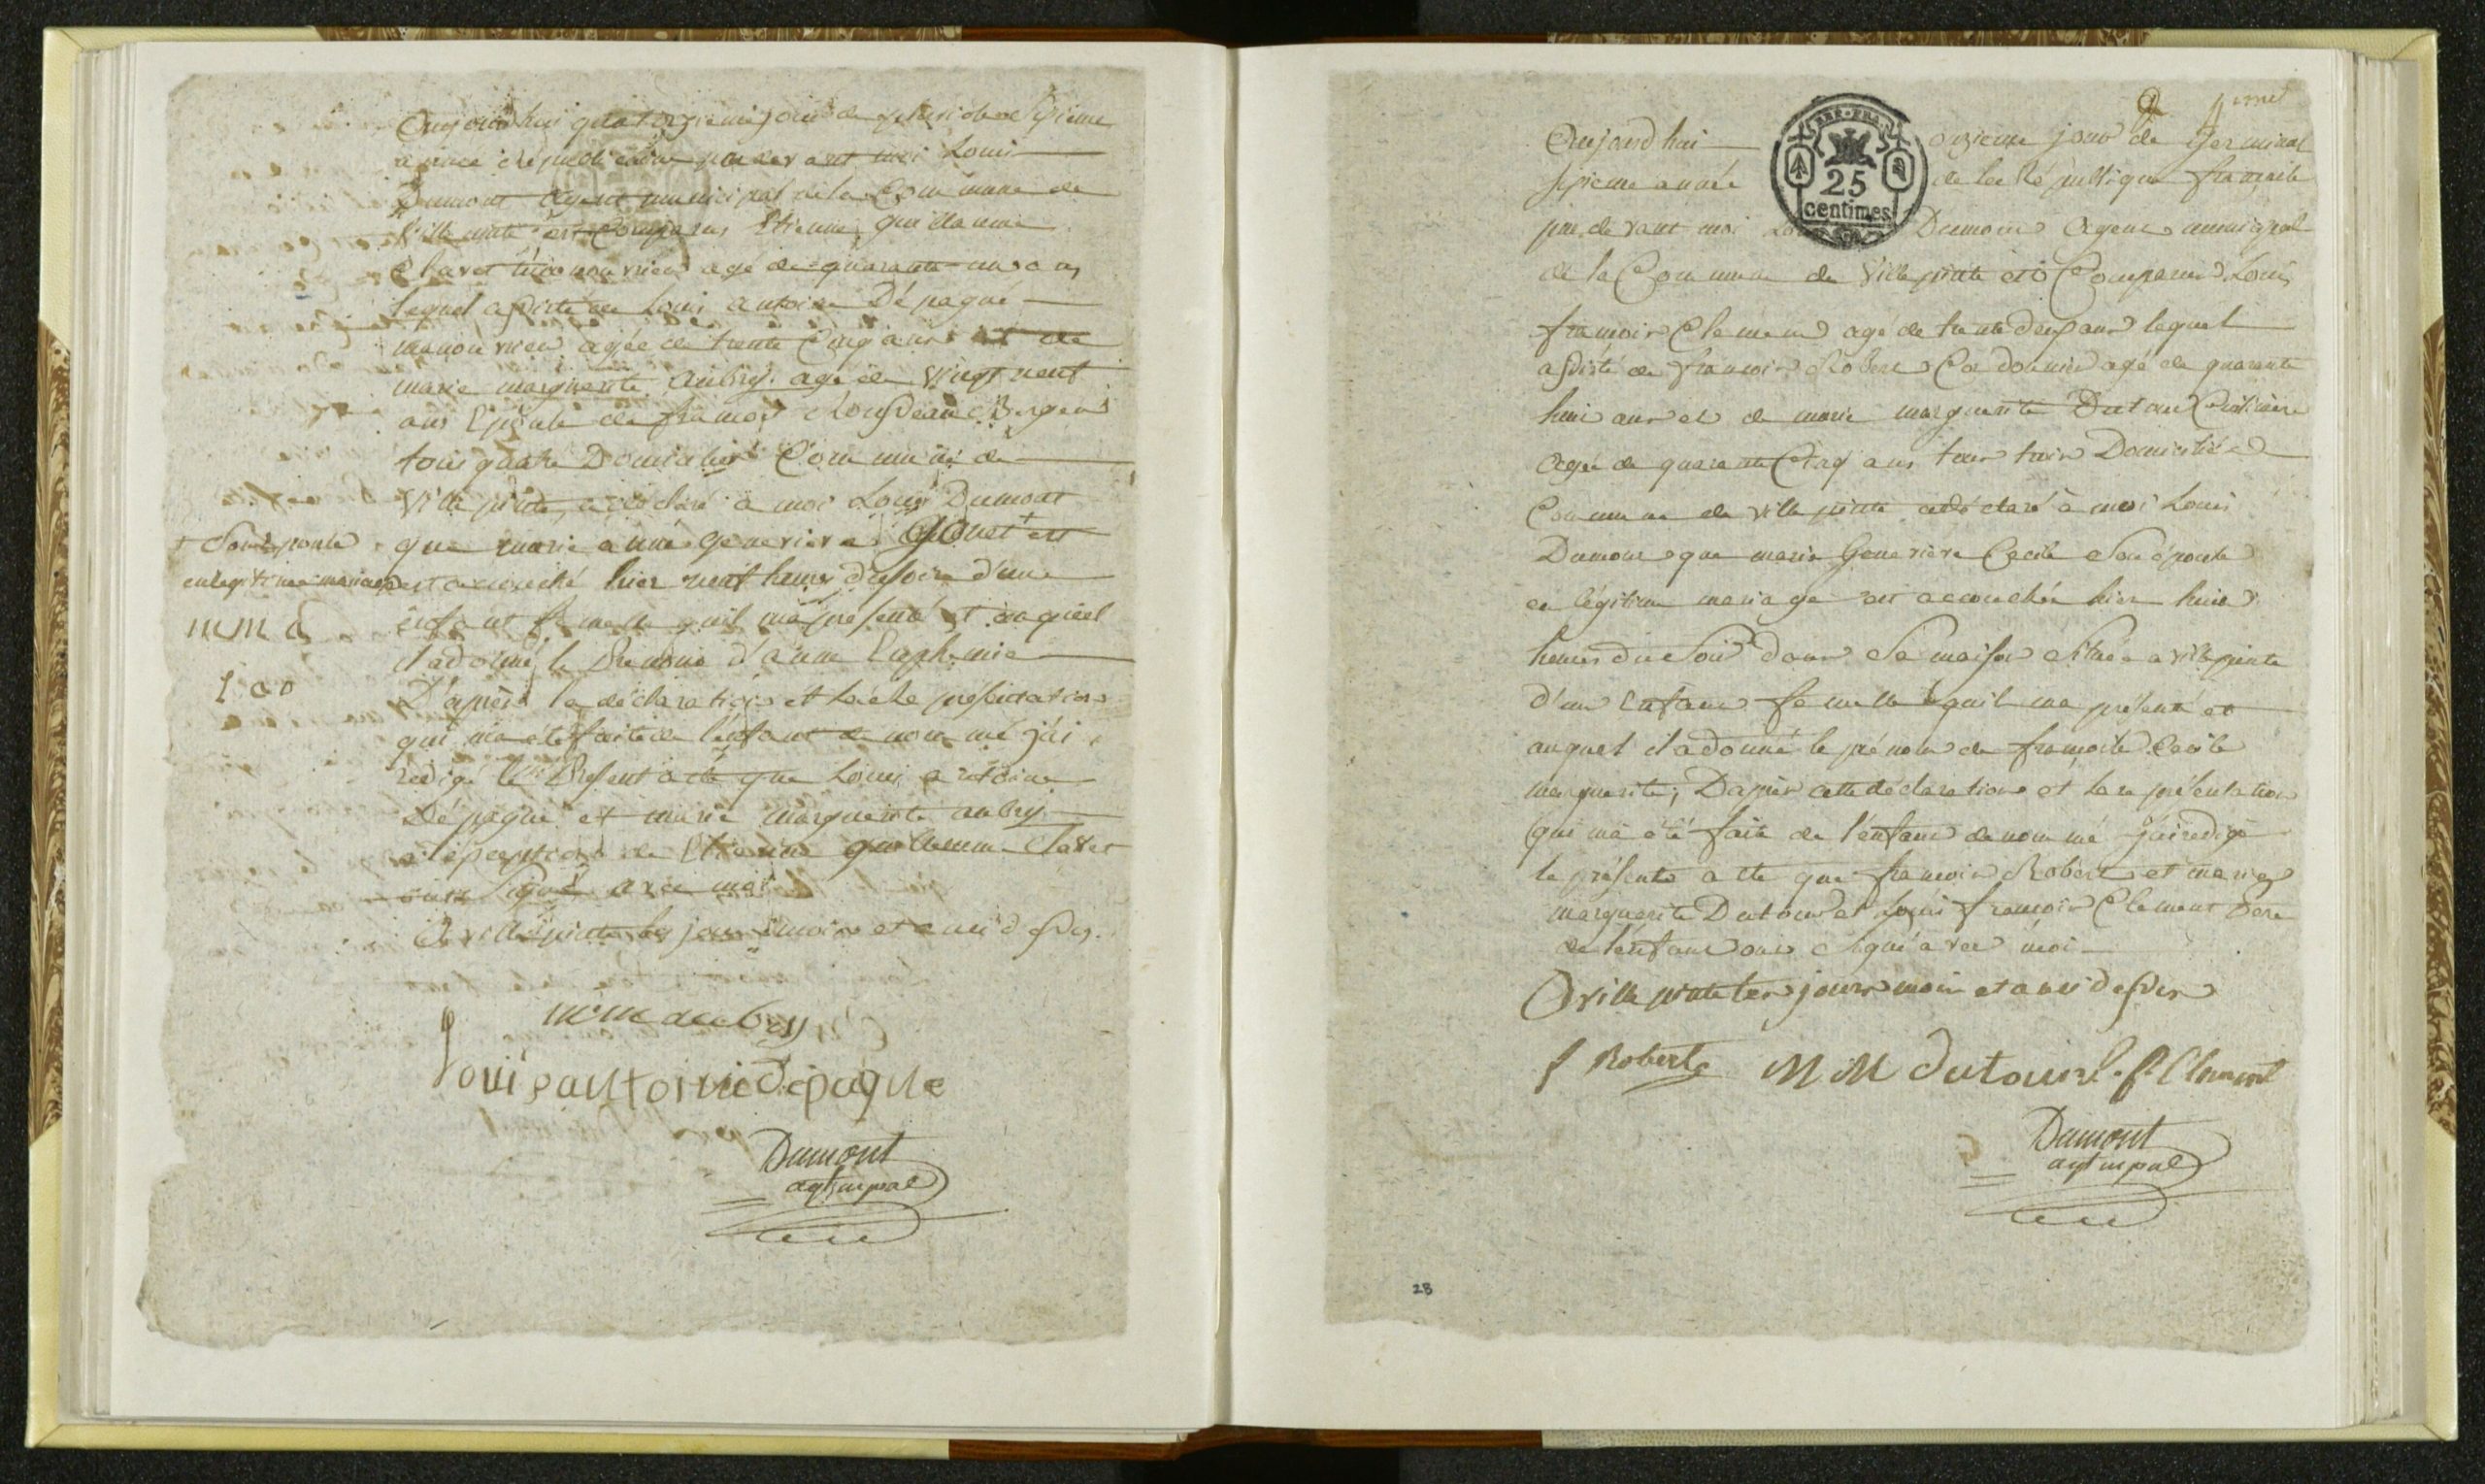 Aujourdhui quatorzieme jour de septieme
année républicaine par devant moi Louis
Dumont agent municipal de la Commune de
Villepinte est Comparus Etienne guillaume
Claret manouvrier agé de quarante un ans
lequel assisté de Louis antoine Dépaqué
manouvrier agée de trente Cinq ans et de
marie marguerite Aubry agée de Vingt neuf
ans Epouse de francois Berger
tous quatre Domicilies Commune de
Ville pinte, a déclaré à moi Louis Dumont
+ Son Epouse
en legitime mariage
m m a
l a D
que marie anne genevieve + est
est accouché hier neuf heures du soire d'une
enfant femelle quil ma presenté et auquel
il a donné le Prenome d'anne Euphemie
D'après la déclaration et présentation
qui ma été faite de l'enfant de nommé j'ai
redigé le Present acte que Louis antoine
Dépaqué et marie marguerite aubry
a l'éxception de Etienne guillaume Claret
onts signé avec moi
A villepinte les jour mois et ans dessus.
m m aubry
Louis antoine depaque
Dumont
agt mpal
2
Aujourd hui onzieme jour de Germinal
septieme année de la République francaise
par devant moi Louis Dumont Agent municipal
de la Commune de Villepinte est Comparus Louis
francois Clement agé de trente deux ans lequel
assisté de francois Robert Cordonnier agé de quarante
huit ans et de marie marguerite Dutour
agée de quarante Cinq ans tous trois Domicilié
Commune de ville pinte a déclaré à moi Louis
Dumont que marie Genevieve Cecile Son épouse
en légitime mariage est accouchée hier huit
heures du Soir dans Sa maison Située a villepinte
d'un Enfant femelle quil ma présenté et
auquel il a donné le prénom de francoise Cecile
marguerite; D'après cette déclaration et la représentation
qui ma été faite de l'enfant de nommé J'ai redigé
le présente acte que francois Robert et marie
marguerite Dutour et Louis francois Clement pere
de l'enfant ont signé avec moi
A ville pinte les jours mois et ans dessus
REP. FRA.
25
centimes
f Robert M M dutour L. f. Clement
Dumont
agt mpal
28